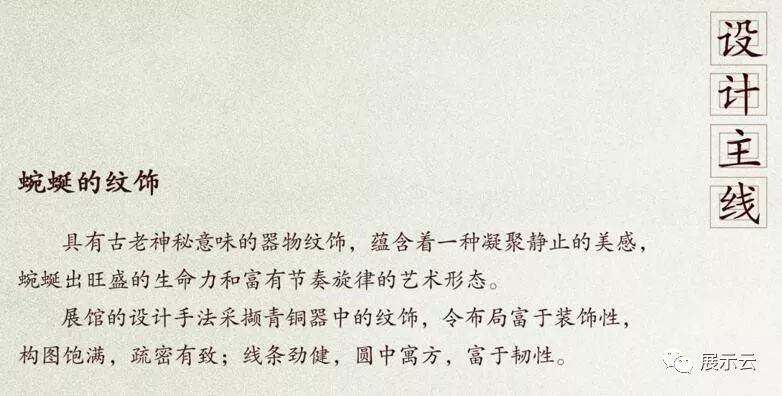 设计主线
蜿蜒的纹饰
具有古老神秘意味的器物纹饰，蕴含着一种凝聚静止的美感，
蜿蜒出旺盛的生命力和富有节奏旋律的艺术形态。
展馆的设计手法采撷青铜器中的纹饰，令布局富于装饰性，
构图饱满，疏密有致；线条劲健，圆中寓方，富于韧性。
展示云